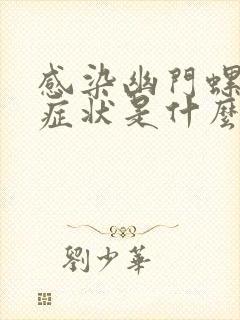 感染幽門螺
症状是什麼
劉少華